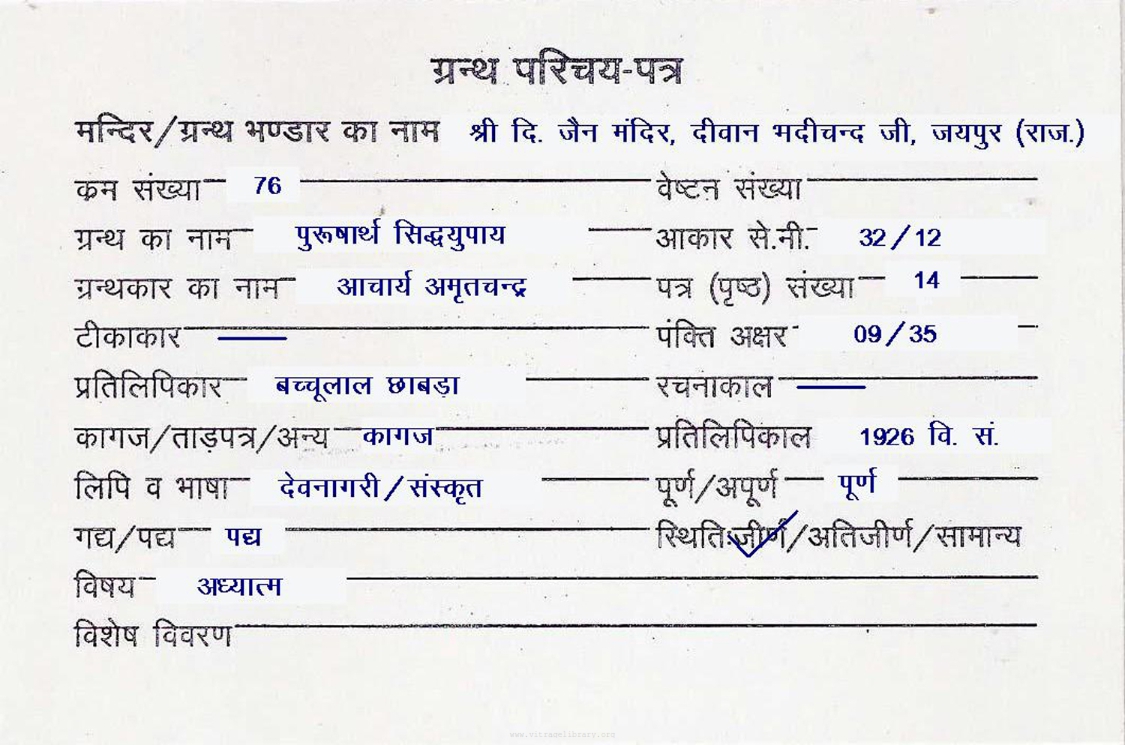 ग्रन्थ परिचय-पत्र
मन्दिर/ग्रन्थ भण्डार का नाम श्री दि. जैन मंदिर, दीवान भदीचन्द जी, जयपुर (राज.)
क्रम संख्या 76 वेष्टन संख्या
ग्रन्थ का नाम पुरूषार्थ सिद्धयुपाय आकार से.मी. 32/12
ग्रन्थकार का नाम आचार्य अमृतचन्द्र पत्र (पृष्ठ) संख्या 14
टीकाकार — पंक्ति अक्षर 09/35
प्रतिलिपिकार बच्चूलाल छाबड़ा रचनाकाल —
कागज/ताड़पत्र/अन्य कागज प्रतिलिपिकाल 1926 वि. सं.
लिपि व भाषा देवनागरी/संस्कृत पूर्ण/अपूर्ण पूर्ण
गद्य/पद्य पद्य स्थितिःजीर्ण/अतिजीर्ण/सामान्य
विषय अध्यात्म
विशेष विवरण